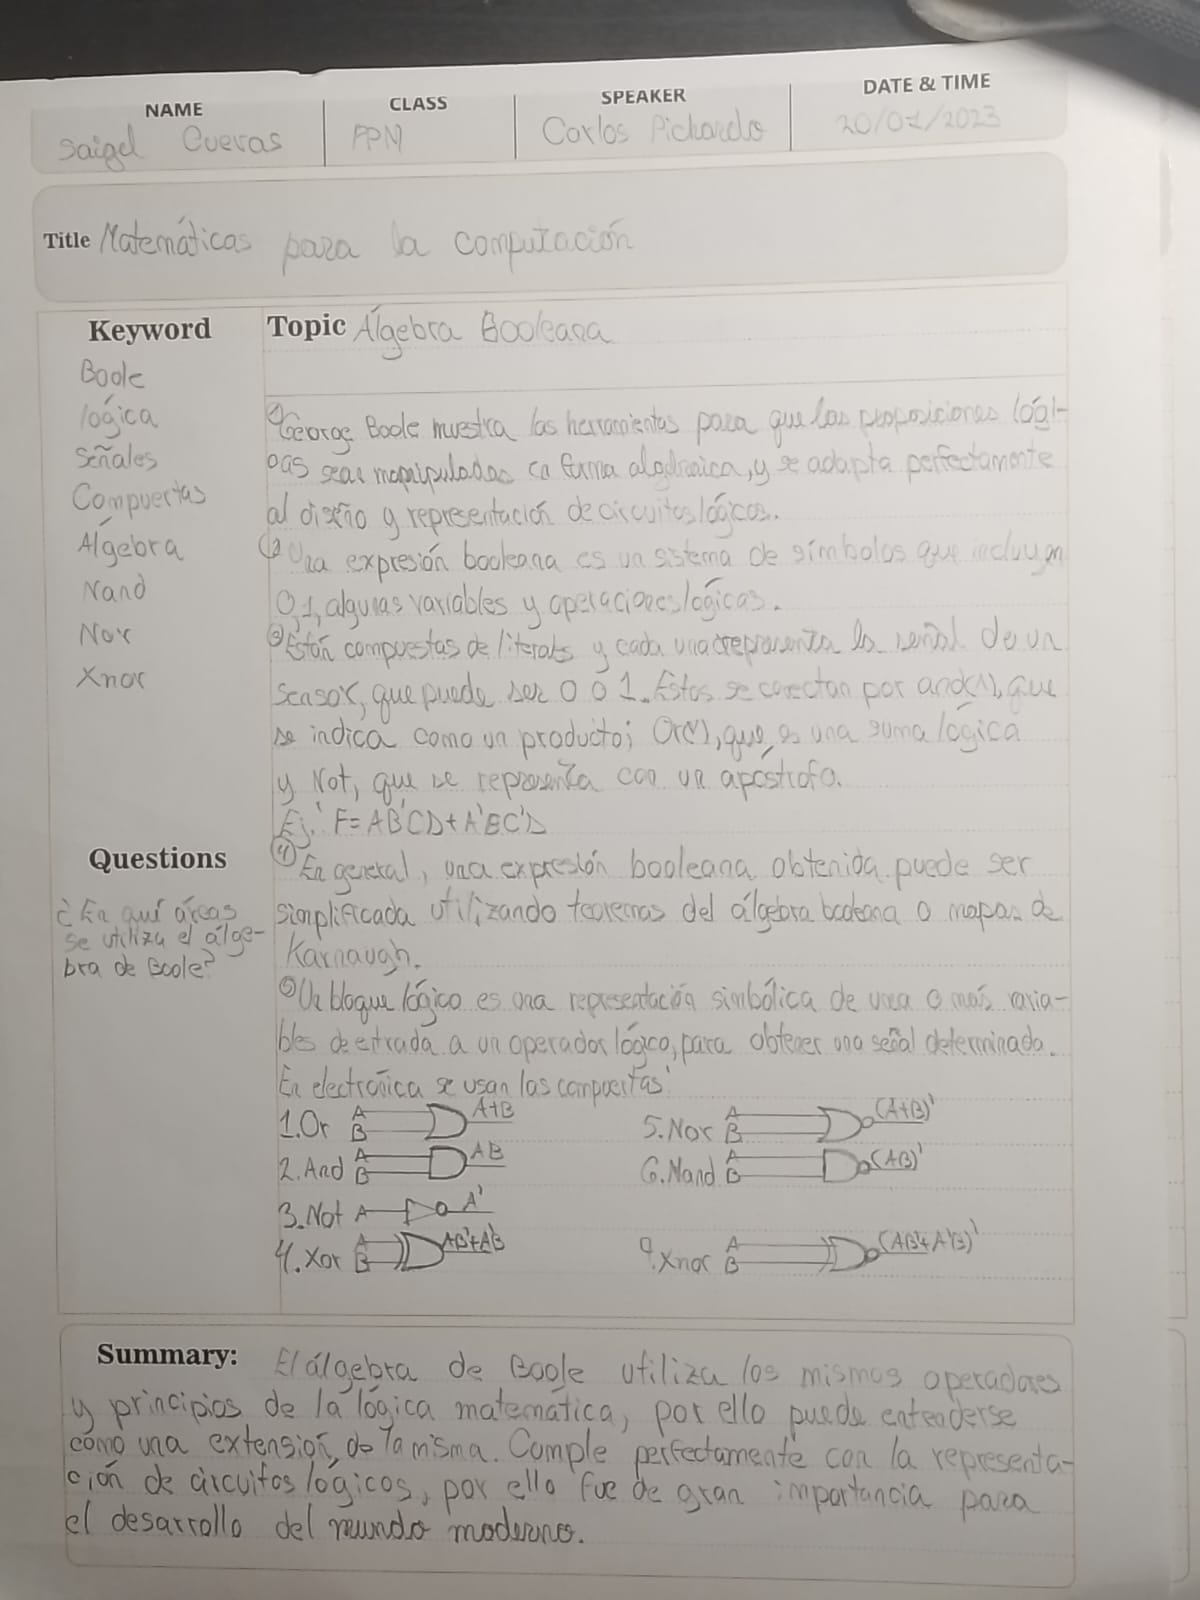 NAME
CLASS
SPEAKER
DATE & TIME
Saigel Cuevas
PPM
Carlos Pichardo
20/01/2023
Title Matemáticas para la computación
Keyword
Boole
lógica
Señales
Compuertas
Álgebra
Nand
Nor
Xnor
Questions
¿En qué áreas
se utiliza el álge-
bra de Boole?
Topic Álgebra Booleana
1 George Boole muestra las herramientas para que las proposiciones lógi-
cas sean manipuladas en forma algebraica, y se adapta perfectamente
al diseño y representación de circuitos lógicos.
2 Una expresión booleana es un sistema de símbolos que incluyen
0,1, algunas variables y operaciones lógicas.
3 Están compuestas de literales y cada una representa la señal de un
sensor, que puede ser 0 ó 1. Estos se conectan por and(∧), que
se indica como un producto; Or(∨), que es una suma lógica
y Not, que se representa con un apóstrofo.
Ej: F=AB'CD+A'BC'D
4 En general, una expresión booleana obtenida puede ser
simplificada utilizando teoremas del álgebra booleana o mapas de
Karnaugh.
5 Un bloque lógico es una representación simbólica de una o más varia-
bles de entrada a un operador lógico, para obtener una señal determinada.
En electrónica se usan las compuertas:
1.Or A B A+B
5.Nor A B (A+B)'
2.And A B AB
6.Nand A B (AB)'
3.Not A A'
4.Xor A B AB'+A'B
9.Xnor A B (AB'+A'B)'
Summary: El álgebra de Boole utiliza los mismos operadores
y principios de la lógica matemática, por ello puede entenderse
como una extensión de la misma. Cumple perfectamente con la representa-
ción de circuitos lógicos, por ello fue de gran importancia para
el desarrollo del mundo moderno.